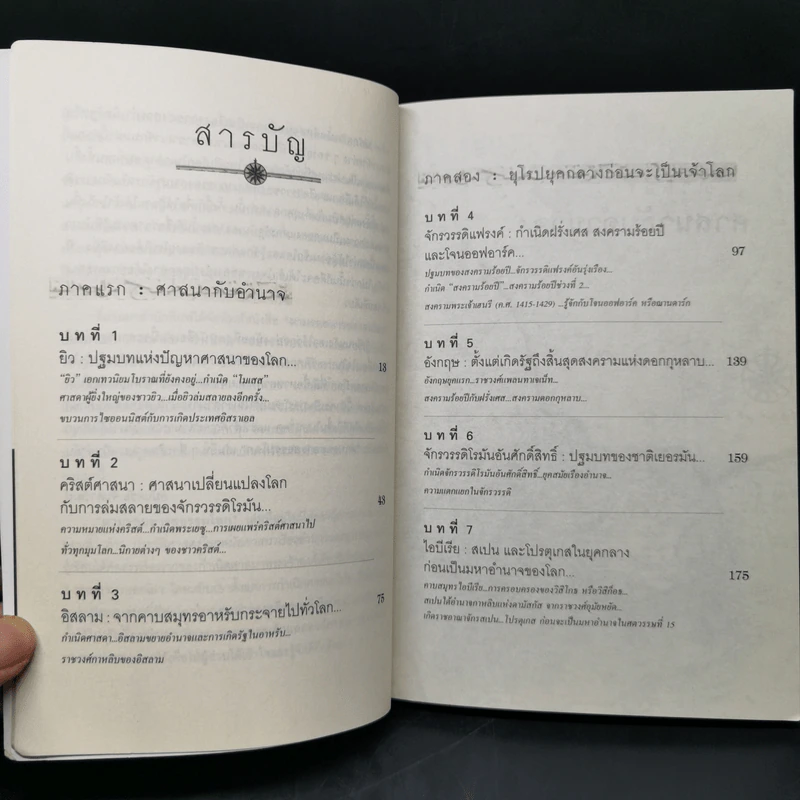 สารบัญ
ภาคแรก : ศาสนากับอำนาจ
บทที่ 1
ยิว : ปฐมบทแห่งปัญหาศาสนาของโลก... 13
"ยิว" เอกเทวนิยมโบราณที่ยังคงอยู่...กำเนิด "โมเสส"
ศาสดาผู้ยิ่งใหญ่ของชาวยิว...เมื่อยิวล่มสลายลงอีกครั้ง...
ขบวนการไซออนนิสต์กับการเกิดประเทศอิสราเอล
บทที่ 2
คริสต์ศาสนา : ศาสนาเปลี่ยนแปลงโลก
กับการล่มสลายของจักรวรรดิโรมัน... 43
ความหมายแห่งคริสต์...กำเนิดพระเยซู...การเผยแพร่คริสต์ศาสนาไป
ทั่วทุกมุมโลก...นิกายต่างๆ ของชาวคริสต์...
บทที่ 3
อิสลาม : จากคาบสมุทรอาหรับกระจายไปทั่วโลก... 75
กำเนิดศาสดา...อิสลามขยายอำนาจและการเกิดรัฐในอาหรับ...
ราชวงศ์กาหลิบของอิสลาม
ภาคสอง : ยุโรปยุคกลางก่อนจะเป็นเจ้าโลก
บทที่ 4
จักรวรรดิแฟรงค์ : กำเนิดฝรั่งเศส สงครามร้อยปี
และโจนออฟอาร์ค... 97
ปฐมบทของสงครามร้อยปี...จักรวรรดิแฟรงค์อันรุ่งเรือง...
กำเนิด "สงครามร้อยปี"...สงครามร้อยปีช่วงที่ 2...
สงครามพระเจ้าเฮนรี (ค.ศ. 1415-1429) ...รู้จักกับโจนออฟอาร์ค หรือฌานดาร์ก
บทที่ 5
อังกฤษ : ตั้งแต่เกิดรัฐถึงสิ้นสุดสงครามแห่งดอกกุหลาบ... 139
อังกฤษยุคแรก...ราชวงศ์แพลนทาเจเน็ท...
สงครามร้อยปีกับฝรั่งเศส...สงครามดอกกุหลาบ...
บทที่ 6
จักรวรรดิโรมันอันศักดิ์สิทธิ์ : ปฐมบทของชาติเยอรมัน... 159
กำเนิดจักรวรรดิโรมันอันศักดิ์สิทธิ์...ยุคสมัยเรืองอำนาจ...
ความแตกแยกในจักรวรรดิ
บทที่ 7
ไอบีเรีย : สเปน และโปรตุเกสในยุคกลาง
ก่อนเป็นมหาอำนาจของโลก... 175
คาบสมุทรไอบีเรีย...การครอบครองของวิสิโกธ หรือวิสิก็อธ...
สเปนใต้อำนาจกาหลิบแห่งดามัสกัส จากราชวงศ์อุมัยหยัด...
เกิดราชอาณาจักรสเปน...โปรตุเกส ก่อนจะเป็นมหาอำนาจในศตวรรษที่ 15